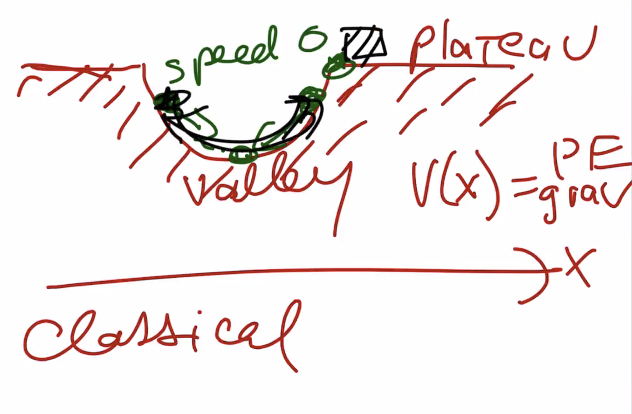 speed 0
plateau
valley
V(x) = PE
grav
x
Classical